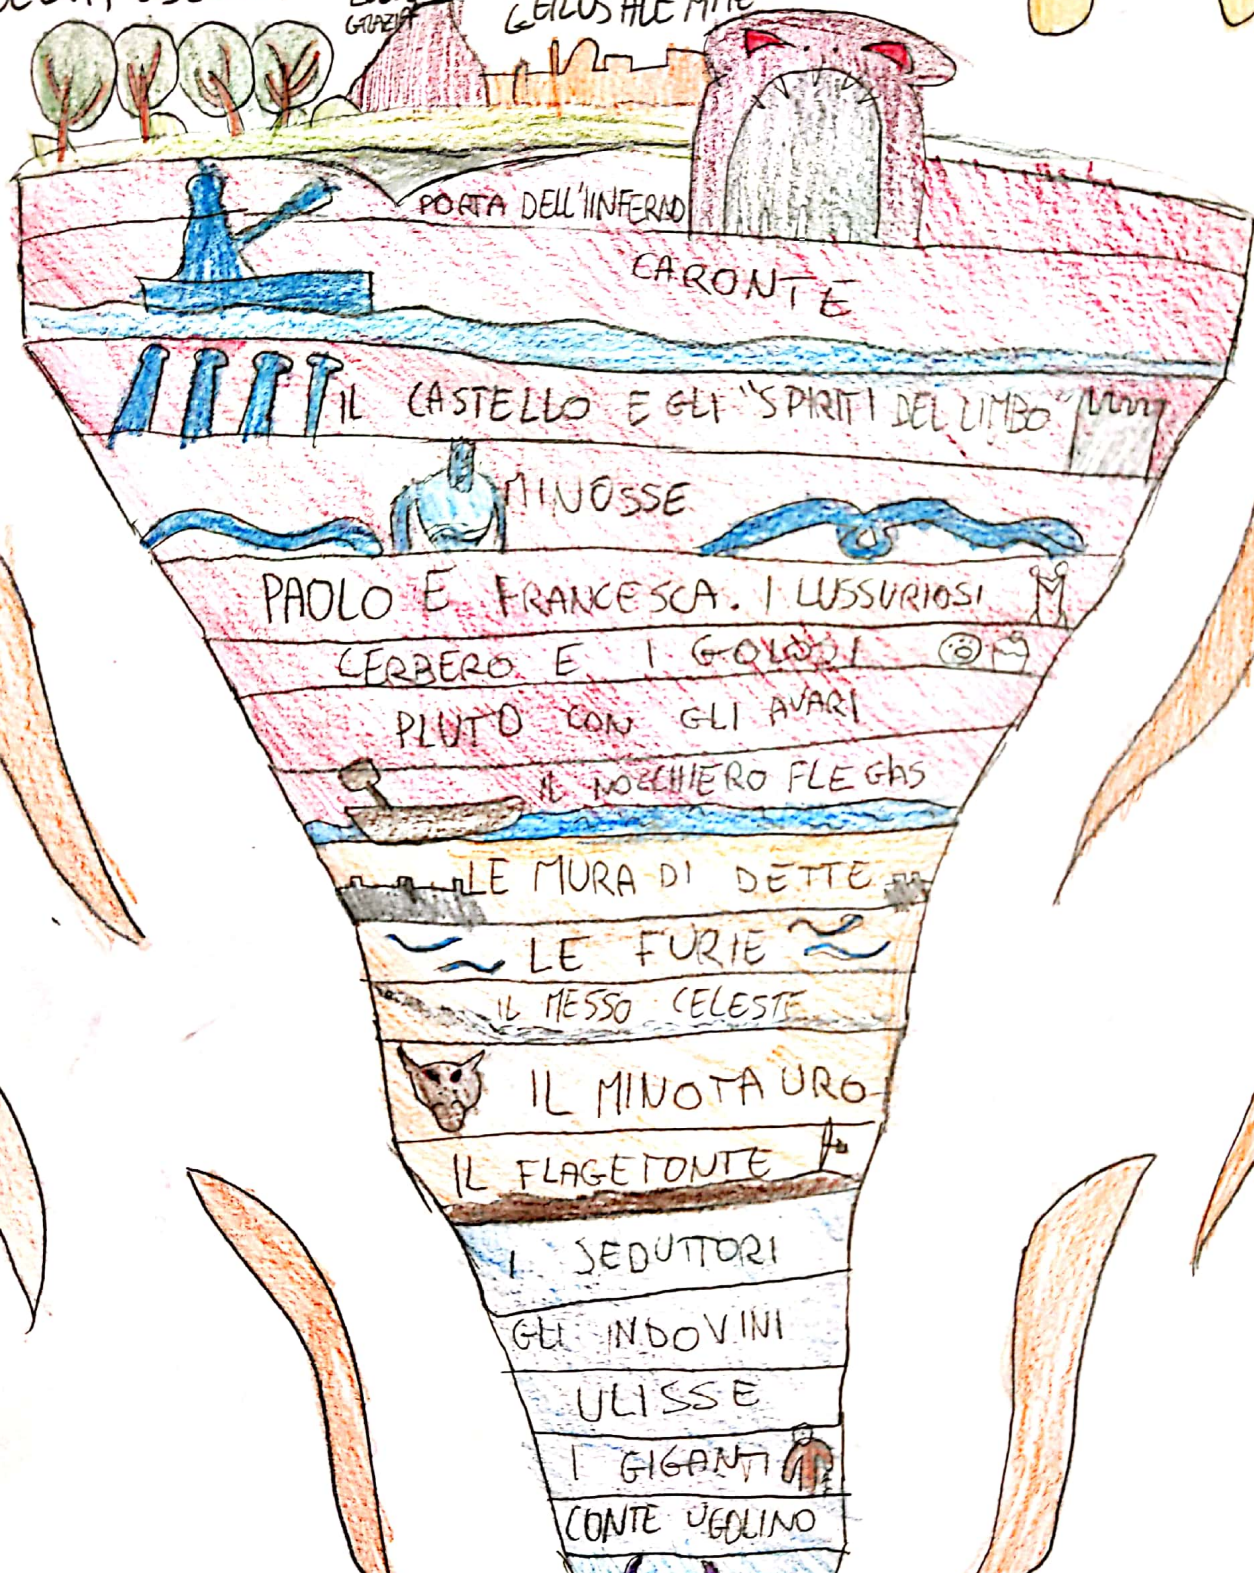 GERUSALEMME
GRAZIA
PORTA DELL'INFERNO
CARONTE
IL CASTELLO E GLI "SPIRITI DEL LIMBO"
MINOSSE
PAOLO E FRANCESCA. I LUSSURIOSI
CERBERO E I GOLOSI
PLUTO CON GLI AVARI
IL NOCCHIERO FLEGIAS
LE MURA DI DETTE
LE FURIE
IL MESSO CELESTE
IL MINOTAURO
IL FLAGETONTE
I SEDUTTORI
GLI INDOVINI
ULISSE
I GIGANTI
CONTE UGOLINO